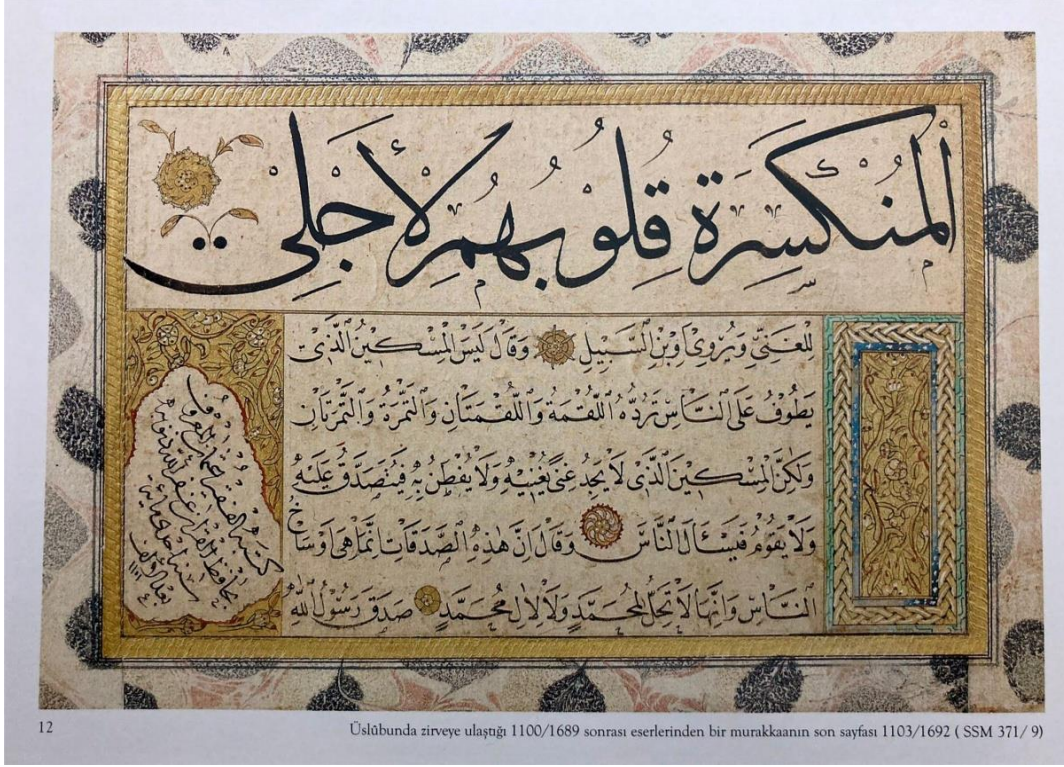 اَلْمُنْكَسِرَةِ قُلُوبُهُمْ لِأَجْلِي
لِلْغَنِيِّ وَيُرْوَى اَوِ بْنِ السَّبِيلِ وَقَالَ لَيْسَ الْمِسْكِينُ الَّذِي
يَطُوفُ عَلَى النَّاسِ تَرُدُّهُ اللُّقْمَةُ وَاللُّقْمَتَانِ وَالتَّمْرَةُ وَالتَّمْرَتَانِ
وَلَكِنَّ الْمِسْكِينَ الَّذِي لَا يَجِدُ غِنًى يُغْنِيهِ وَلَا يُفْطَنُ بِهِ فَيُتَصَدَّقُ عَلَيْهِ
وَلَا يَقُومُ فَيَسْأَلَ النَّاسَ وَقَالَ اِنَّ هٰذِهِ الصَّدَقَاتِ اِنَّمَا هِيَ اَوْسَاخُ
النَّاسِ وَاِنَّهَا لَا تَحِلُّ لِمُحَمَّدٍ وَلَا لِاٰلِ مُحَمَّدٍ صَدَقَ رَسُولُ اللّٰهِ
كتبه الفقير عثمان المعروف
بحافظ القرآن غفر الله ذنوبه
سنة احدى ومائة
بعد الالف
12
Üslûbunda zirveye ulaştığı 1100/1689 sonrası eserlerinden bir murakkaanın son sayfası 1103/1692 ( SSM 371/ 9)